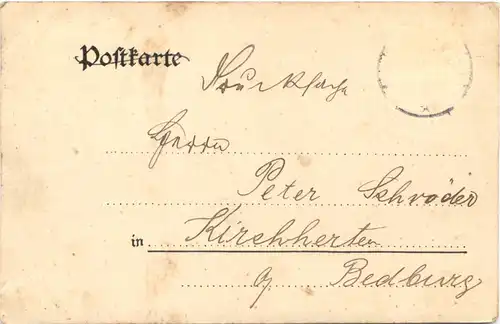 Postkarte
Drucksache
Herrn
Peter Schröder
in Kirchherten
Bedburg